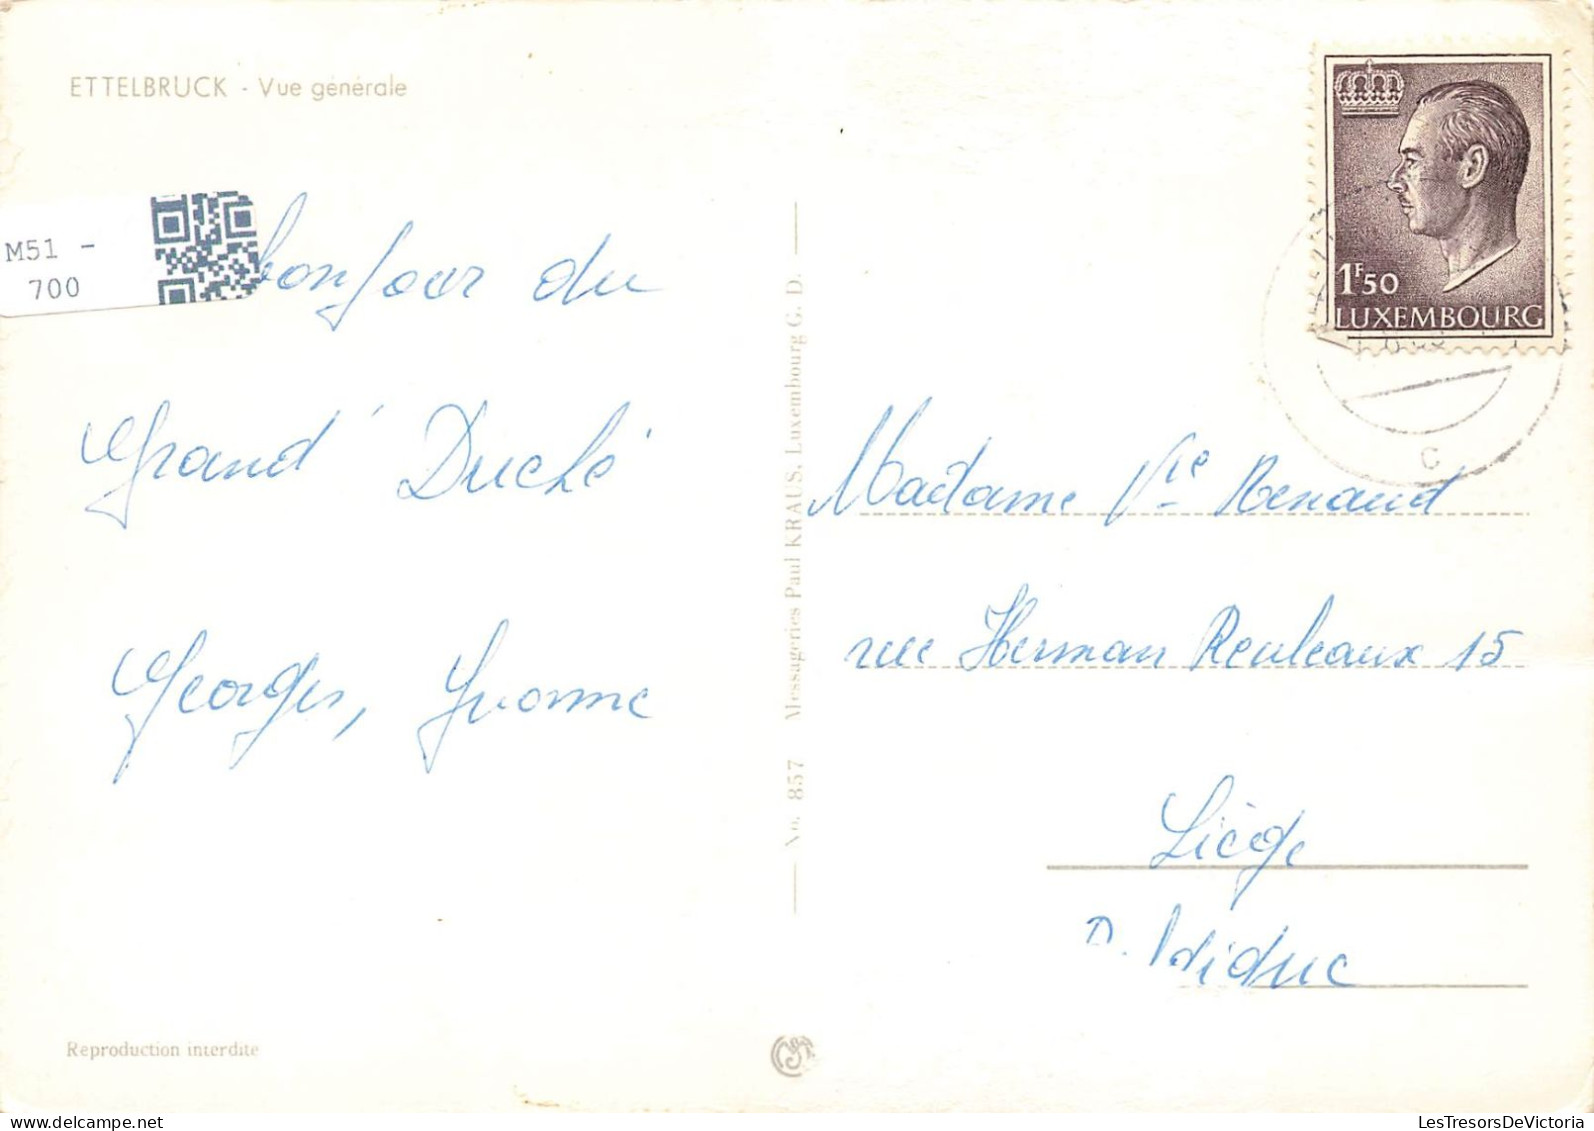 ETTELBRUCK - Vue générale
M51 -
700
bonjour du
Grand Duché
Georges, Yvonne
No. 857 Messageries Paul KRAUS, Luxembourg G. D.
1F50
LUXEMBOURG
C
Madame Vve Renaud
rue Herman Reuleaux 15
Liège
Reproduction interdite
LesTresorsDeVictoria.com